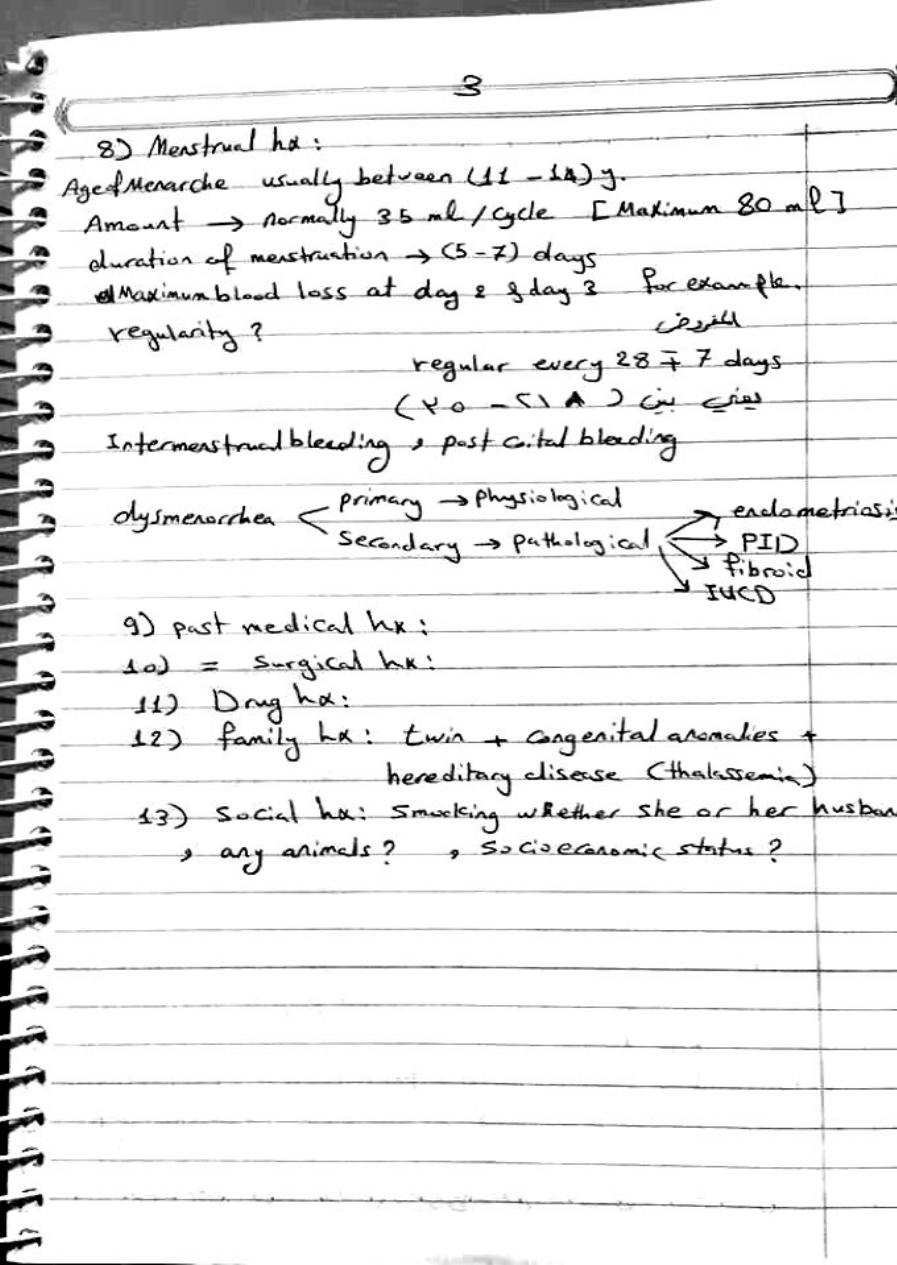 3
8) Menstrual hx :
Age of Menarche usually between (11 - 14) y.
Amount → normally 35 ml / cycle [Maximum 80 ml]
duration of menstruation → (5-7) days
Maximum blood loss at day 2 & day 3 for example.
regularity ? المفروض
regular every 28 ∓ 7 days
يعني بين ( ٢١ - ٣٥ )
Intermenstrual bleeding , post coital bleeding
dysmenorrhea
primary → physiological
Secondary → pathological
→ endometriosis
→ PID
→ fibroid
→ IUCD
9) past medical hx :
10) = Surgical hx :
11) Drug hx :
12) family hx : twin + congenital anomalies +
hereditary disease (thalassemia)
13) Social hx : Smocking whether she or her husban
, any animals ? , Socioeconomic status ?